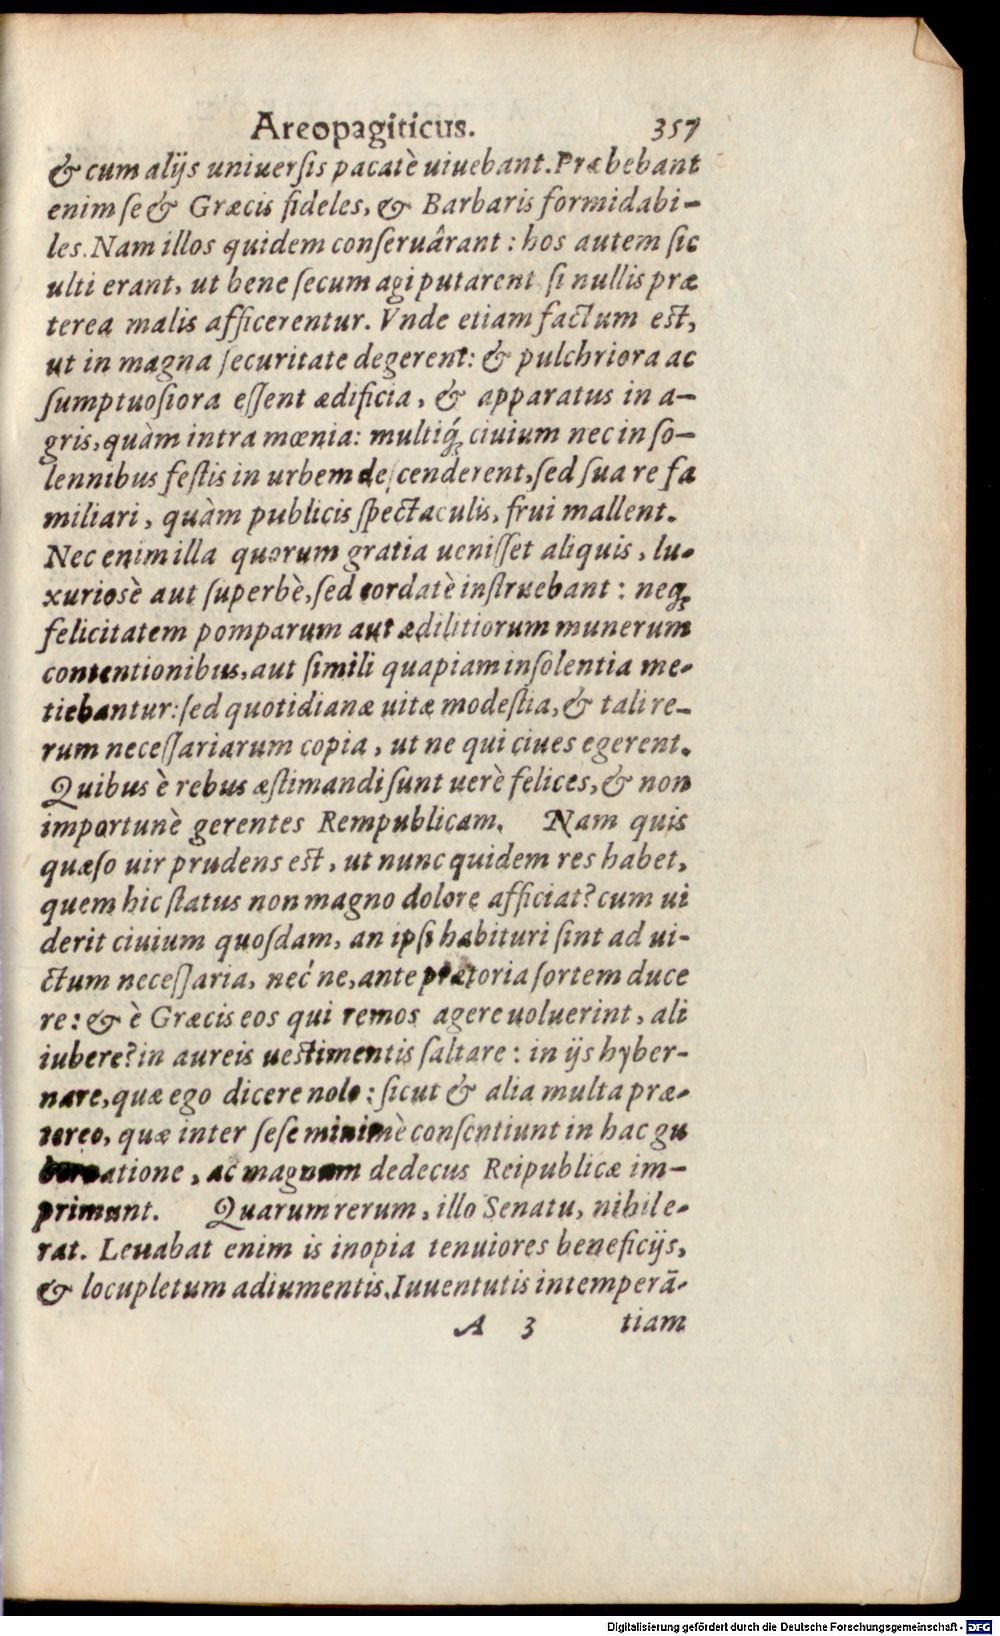 Areopagiticus. 357
& cum alijs uniuersis pacatè uiuebant. Præbebant
enim se & Græcis fideles, & Barbaris formidabi-
les. Nam illos quidem conseruârant: hos autem sic
ulti erant, ut bene secum agi putarent si nullis præ
terea malis afficerentur. Vnde etiam factum est,
ut in magna securitate degerent: & pulchriora ac
sumptuosiora essent ædificia, & apparatus in a-
gris, quàm intra mœnia: multiq́ꝫ ciuium nec in so-
lennibus festis in urbem descenderent, sed sua re fa
miliari, quàm publicis spectaculis, frui mallent.
Nec enim illa quorum gratia uenisset aliquis, lu-
xuriosè aut superbè, sed cordatè instruebant: neqꝫ
felicitatem pomparum aut ædilitiorum munerum
contentionibus, aut simili quapiam insolentia me-
tiebantur: sed quotidianæ uitæ modestia, & tali re-
rum necessariarum copia, ut ne qui ciues egerent.
Quibus è rebus æstimandi sunt uerè felices, & non
importunè gerentes Rempublicam. Nam quis
quæso uir prudens est, ut nunc quidem res habet,
quem hic status non magno dolore afficiat? cum ui
derit ciuium quosdam, an ipsi habituri sint ad ui-
ctum necessaria, neć ne, ante prætoria sortem duce
re: & è Græcis eos qui remos agere uoluerint, ali
iubere? in aureis uestimentis saltare: in ijs hyber-
nare, quæ ego dicere nolo: sicut & alia multa præ-
tereo, quæ inter sese minimè consentiunt in hac gu
bernatione, ac magnum dedecus Reipublicæ im-
primunt. Quarum rerum, illo Senatu, nihil e-
rat. Leuabat enim is inopia tenuiores beneficijs,
& locupletum adiumentis. Iuuentutis intemperā-
A 3 tiam
Digitalisierung gefördert durch die Deutsche Forschungsgemeinschaft - DFG